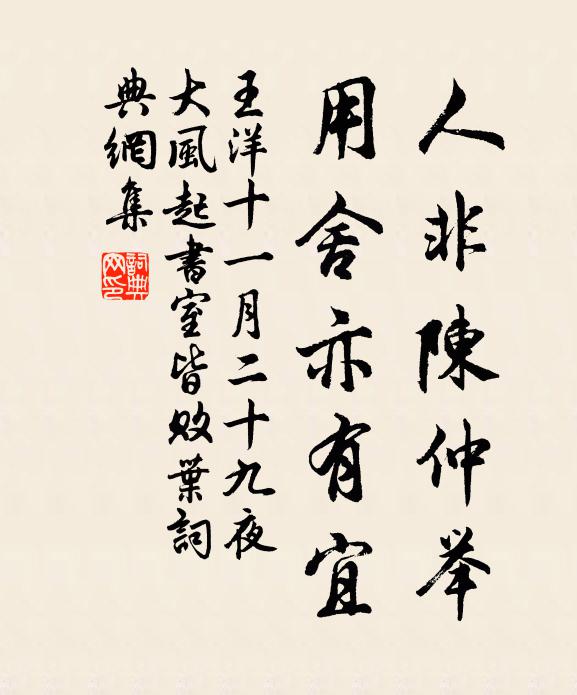 人非陳仲举
用舍亦有宜
王洋十一月二十九夜
大風起書室皆敗葉詞
典網集
詞典
网印